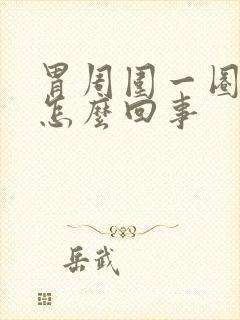 胃周围一圈
怎麽回事
岳武